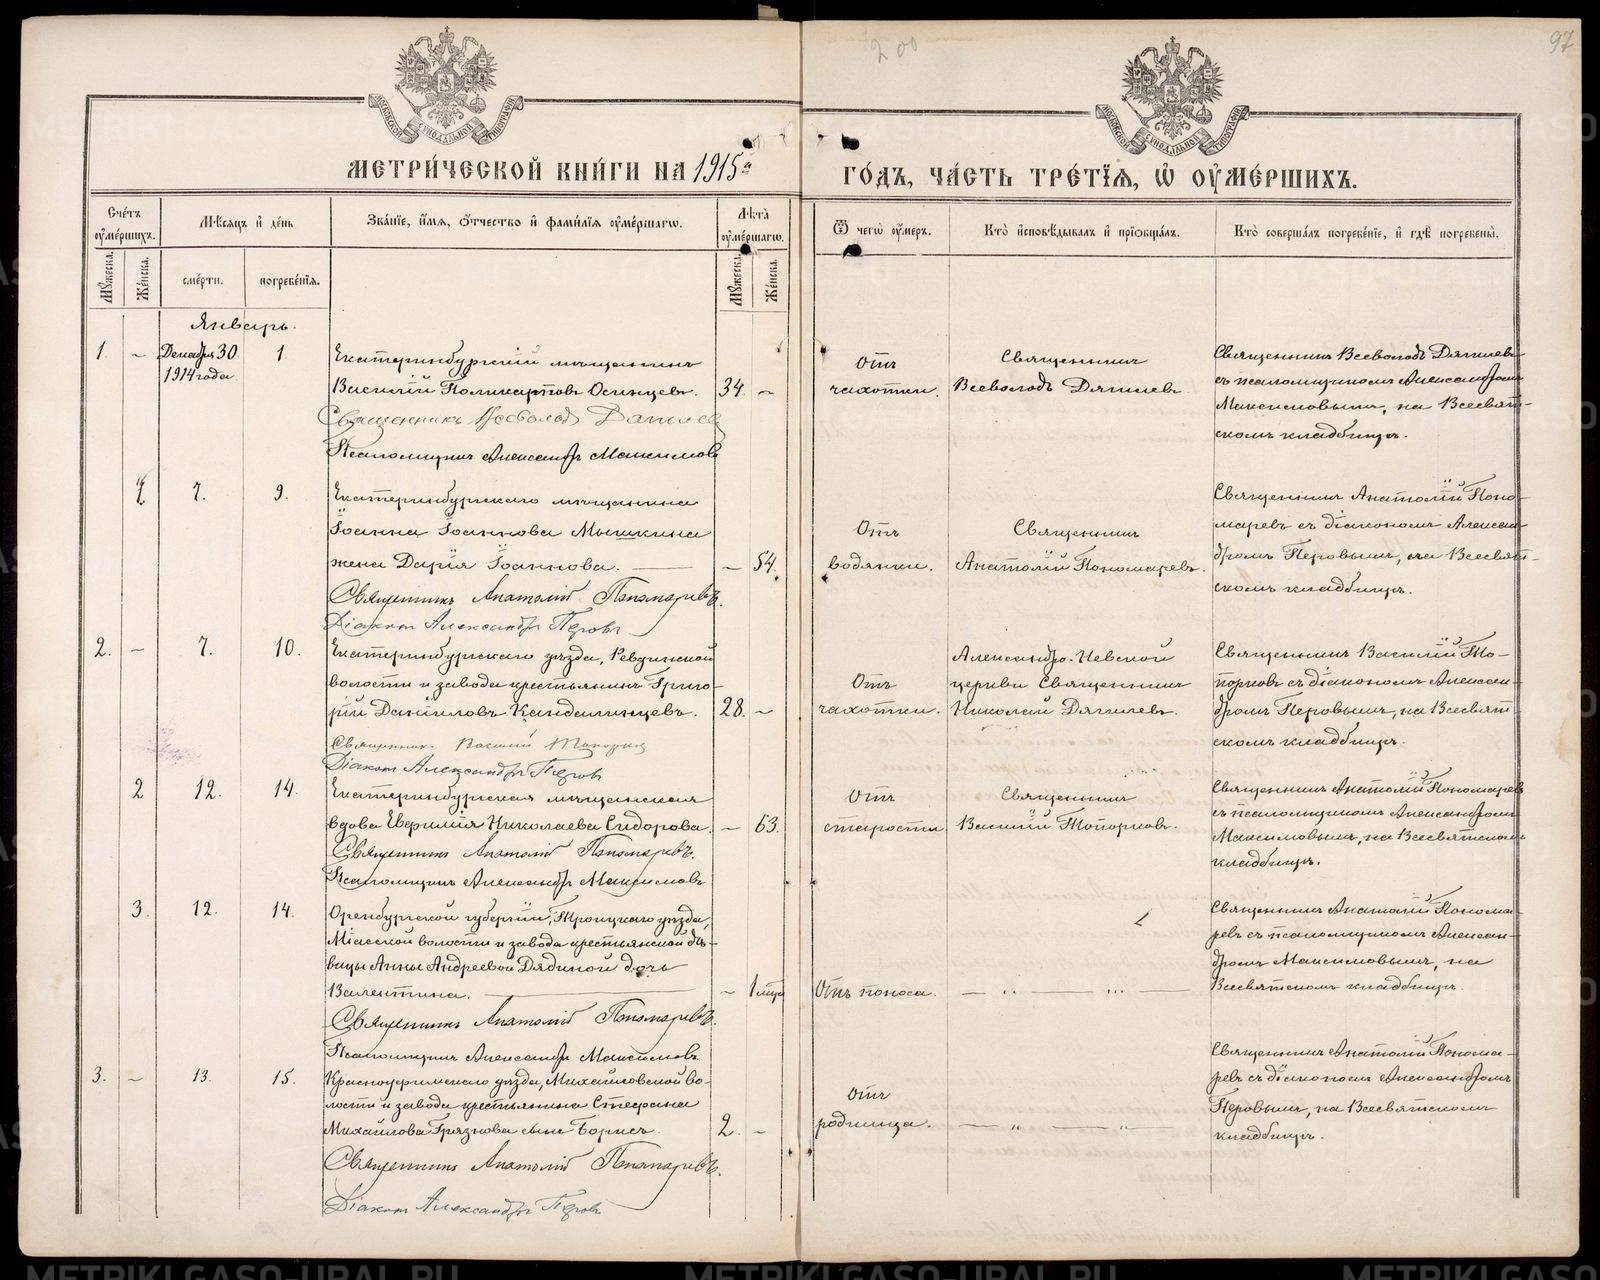 200
97
МОСКОВСКОЙ СѴНОДАЛЬНОЙ ТИПОГРАФІИ
МОСКОВСКОЙ СѴНОДАЛЬНОЙ ТИПОГРАФІИ
МЕТРИ́ЧЕСКОЙ КНИ́ГИ НА 1915й
ГО́ДЪ, ЧА́СТЬ ТРЕ́ТЇЯ, Ѡ҆ ОУ҆МЕ́РШИХЪ.
Сче́тъ оу҆ме́ршихъ.
Мѣсяцъ и҆ де́нь
Зва́нїе, и҆́мя, ѻ҆́тчество и҆ фами́лїя оу҆ме́ршагѡ.
Лѣта̀ оу҆ме́ршагѡ.
Ѿ чегѡ̀ оу҆́меръ.
Кто̀ и҆сповѣ́дывалъ и҆ прїѡбща́лъ.
Кто̀ соверша́лъ погребе́нїе, и҆ гдѣ̀ погребены̀.
Мꙋ́жеска.
Же́нска.
сме́рти.
погребе́нїя.
Мꙋ́жеска.
Же́нска.
Январь.
1. – Декабря 30. 1
1914 года
Екатеринбургскій мѣщанинъ
Василій Поликарповъ Осинцевъ. 34. –
Священникъ Всеволодъ Дягилев
Псаломщикъ Александръ Максимовъ
Отъ
чахотки.
Священникъ
Всеволодъ Дягилевъ
Священникъ Всеволодъ Дягилевъ
съ псаломщикомъ Александромъ
Максимовымъ, на Всесвят-
скомъ кладбищѣ.
1. 7. 9.
Екатеринбургскаго мѣщанина
Іоанна Іоаннова Мышкина
жена Дарія Іоаннова. – 54.
Священникъ Анатолій Пономаревъ.
Діаконъ Александръ Перовъ
Отъ
водянки.
Священникъ
Анатолій Пономаревъ.
Священникъ Анатолій Поно-
маревъ съ діакономъ Алексан-
дромъ Перовымъ, на Всесвят-
скомъ кладбищѣ.
2. – 7. 10.
Екатеринбургскаго уѣзда, Ревдинской
волости и завода крестьянинъ Григо-
рій Даніиловъ Кандалинцевъ. 28. –
Священникъ Василій Топорков
Діаконъ Александръ Перов
Отъ
чахотки.
Александро-Невской
церкви Священникъ
Николай Дягилевъ.
Священникъ Василій То-
порковъ съ діакономъ Алексан-
дромъ Перовымъ, на Всесвят-
скомъ кладбищѣ.
2 12. 14.
Екатеринбургская мѣщанская
вдова Евфимія Николаева Сидорова. – 63.
Священникъ Анатолій Пономаревъ.
Псаломщикъ Александръ Максимовъ
Отъ
старости
Священникъ
Василій Топорковъ.
Священникъ Анатолій Пономаревъ
съ псаломщикомъ Александромъ
Максимовымъ, на Всесвятскомъ
кладбищѣ.
3. 12. 14.
Оренбургской губерніи, Троицкаго уѣзда,
Міасской волости и завода крестьянской дѣ-
вицы Анны Андреевой Дядиной дочь
Валентина. – 1 мѣся
Священникъ Анатолій Пономаревъ.
Псаломщикъ Александръ Максимовъ
Отъ поноса.
Священникъ Анатолій Понома-
ревъ съ псаломщикомъ Алексан-
дромъ Максимовымъ, на
Всесвятскомъ кладбищѣ.
3. – 13. 15.
Красноуфимскаго уѣзда, Михайловской во-
лости и завода крестьянина Стефана
Михаилова Грязнова сынъ Борисъ. 2. –
Священникъ Анатолій Пономаревъ.
Діаконъ Александръ Перовъ
Отъ
родимца.
Священникъ Анатолій Понома-
ревъ съ діакономъ Александромъ
Перовымъ, на Всесвятскомъ
кладбищѣ.
METRIKI.GASO-URAL.RU